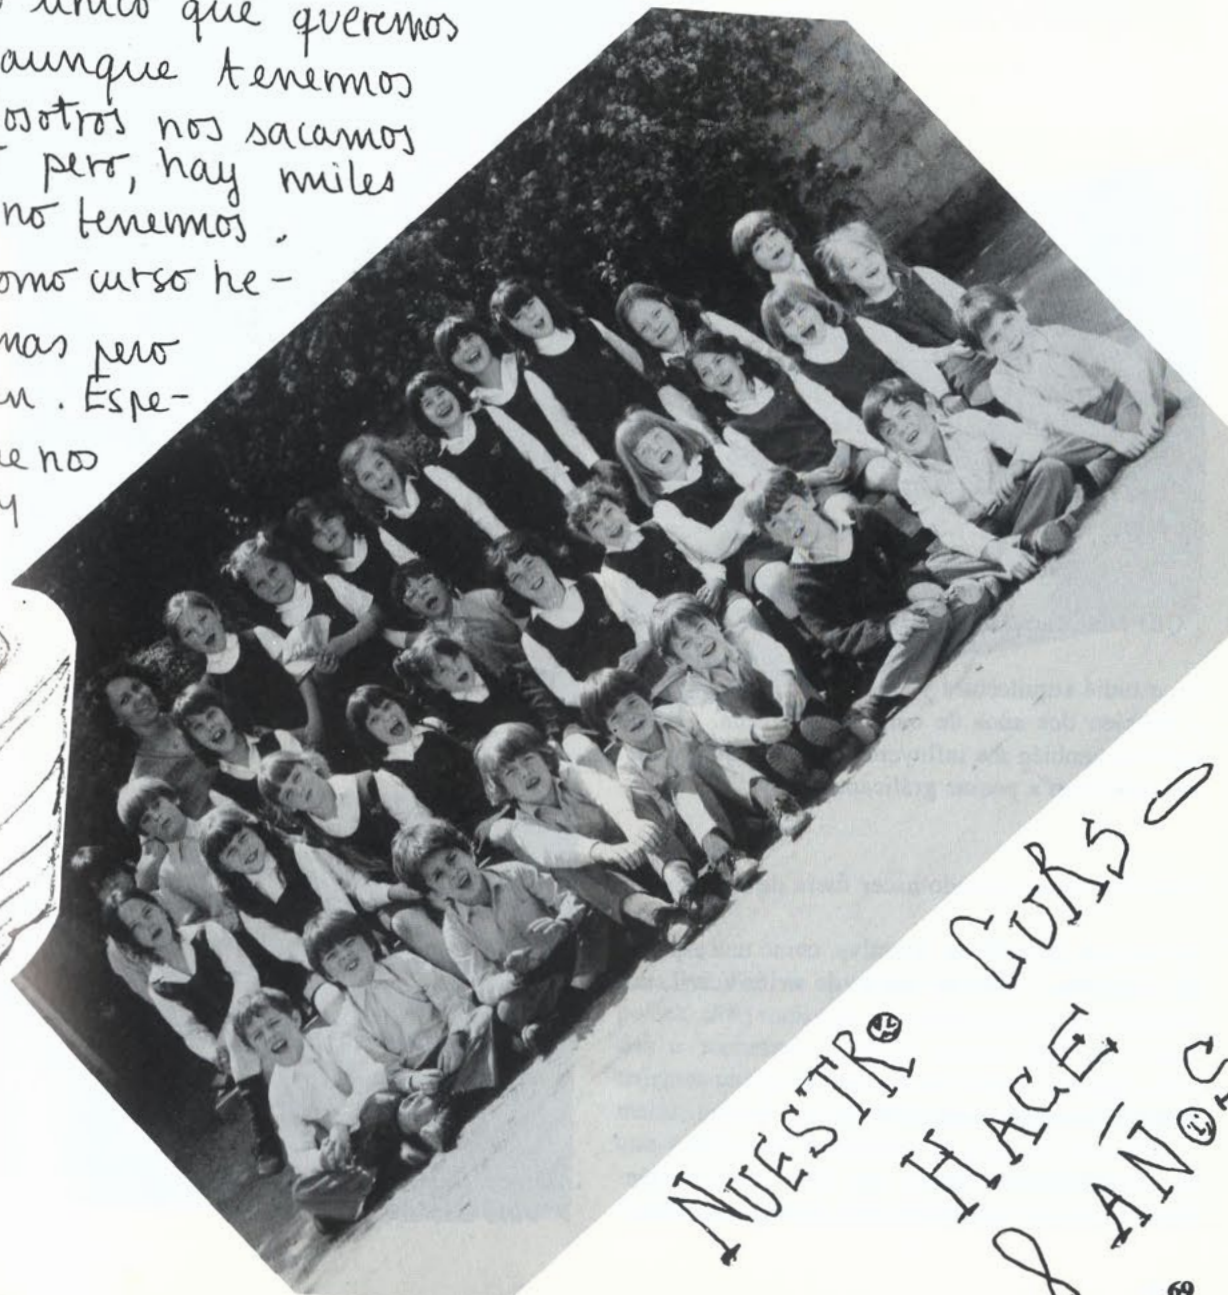 único que queremos
aunque tenemos
osotros nos sacamos
pero, hay miles
no tenemos.
omo curso he-
mas pero
n. Espe-
ue nos
y
NUESTRO CURSO
HACE
8 AÑOS
69